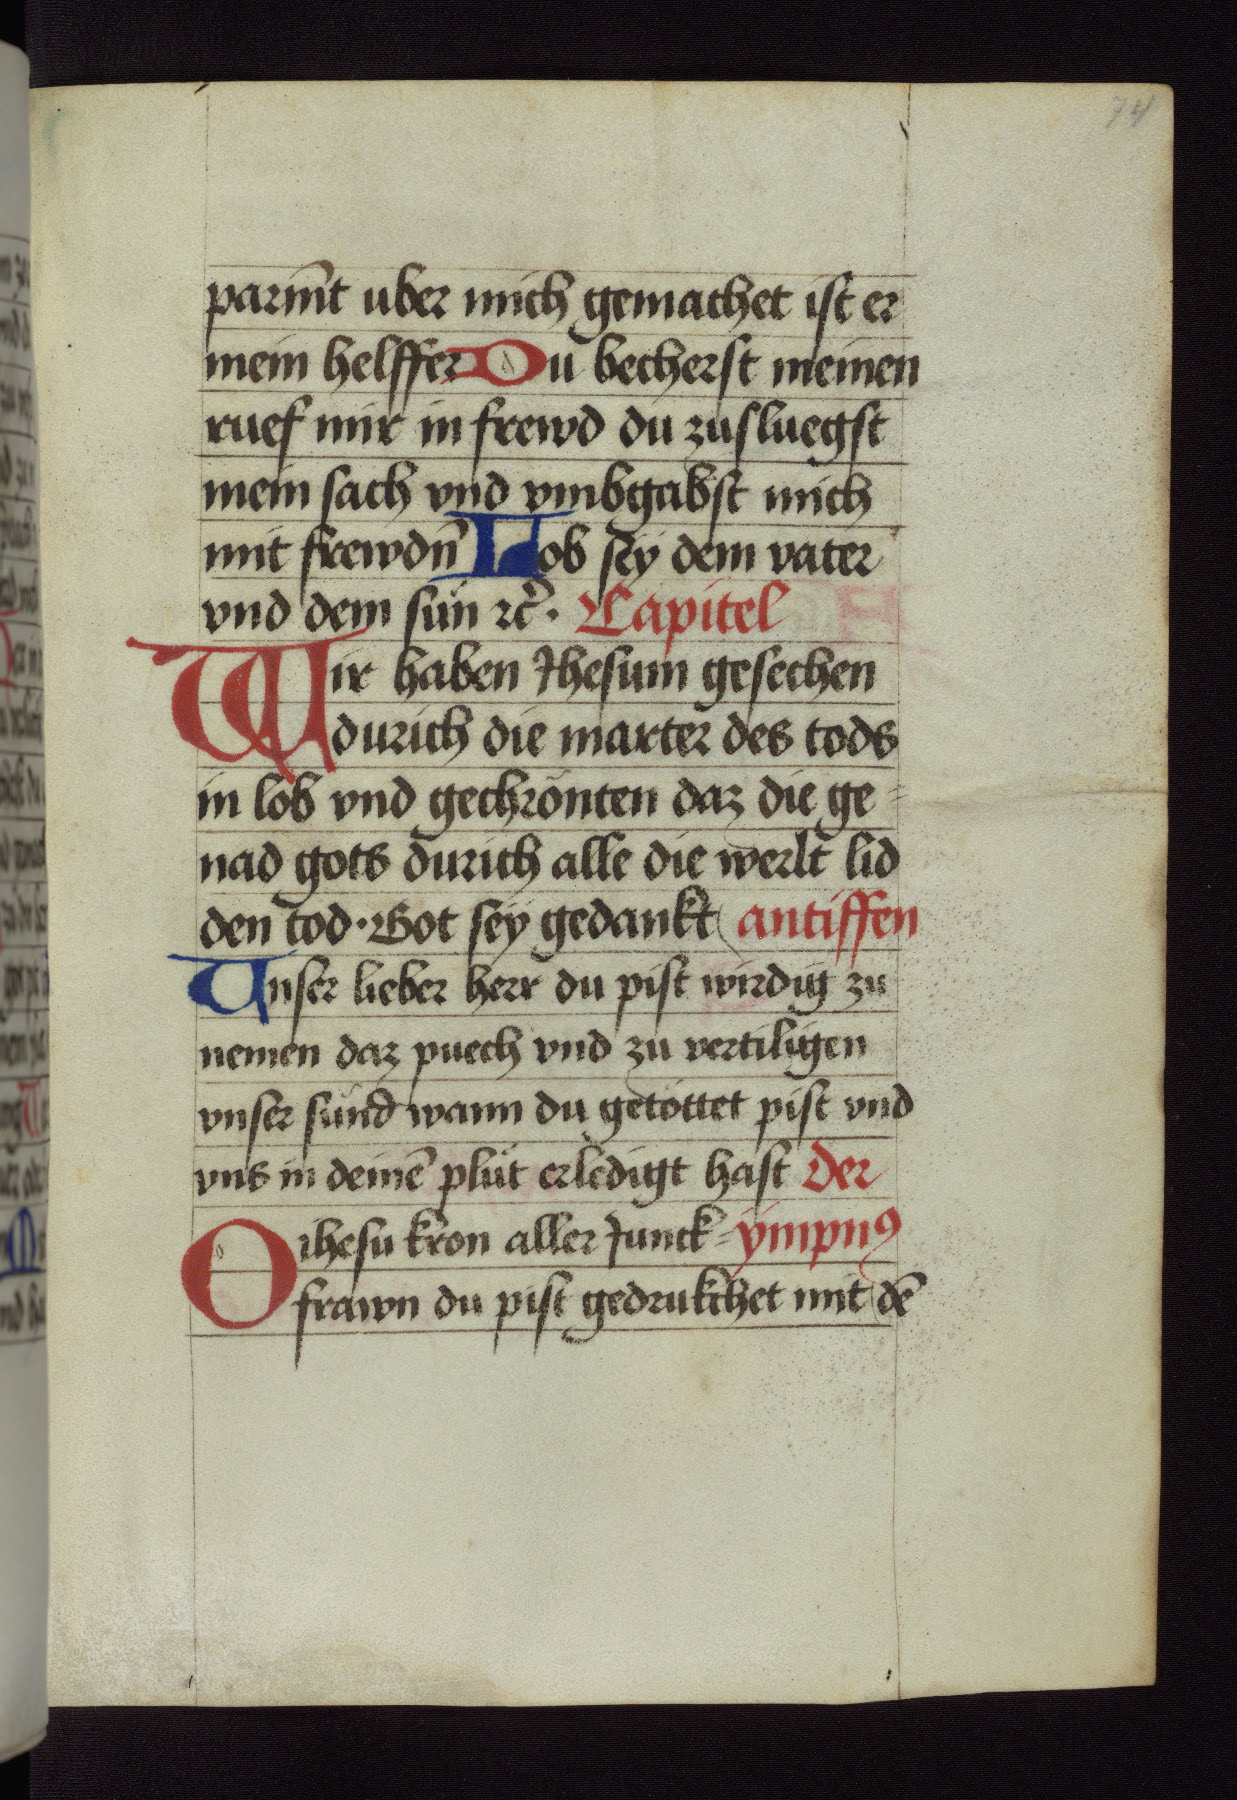 74
parmt̄ uber mich gemachet ist er
mein helffer Du becherst meinen
ruef mir in frewd du zusluegst
mein sach vnd vmbgabst mich
mit frewdn̄ Lob sey dem vater
vnd dem sun ꝛc̄. Capitel
Wir haben Jhesum gesechen
durich die marter des tods
in lob vnd gechrönten daz die ge=
nad gots durich alle die werlt lid
den tod · Got sey gedankt antiffen
Unser lieber herr du pist wirdig zu
nemen daz puech vnd zu vertiligen
vnser sünd wann du getöttet pist vnd
vns in deinē plüt erledigt hast Der
O ihesu kron aller Junck= ympnꝰ
frawn du pist gedrukchet mit dē